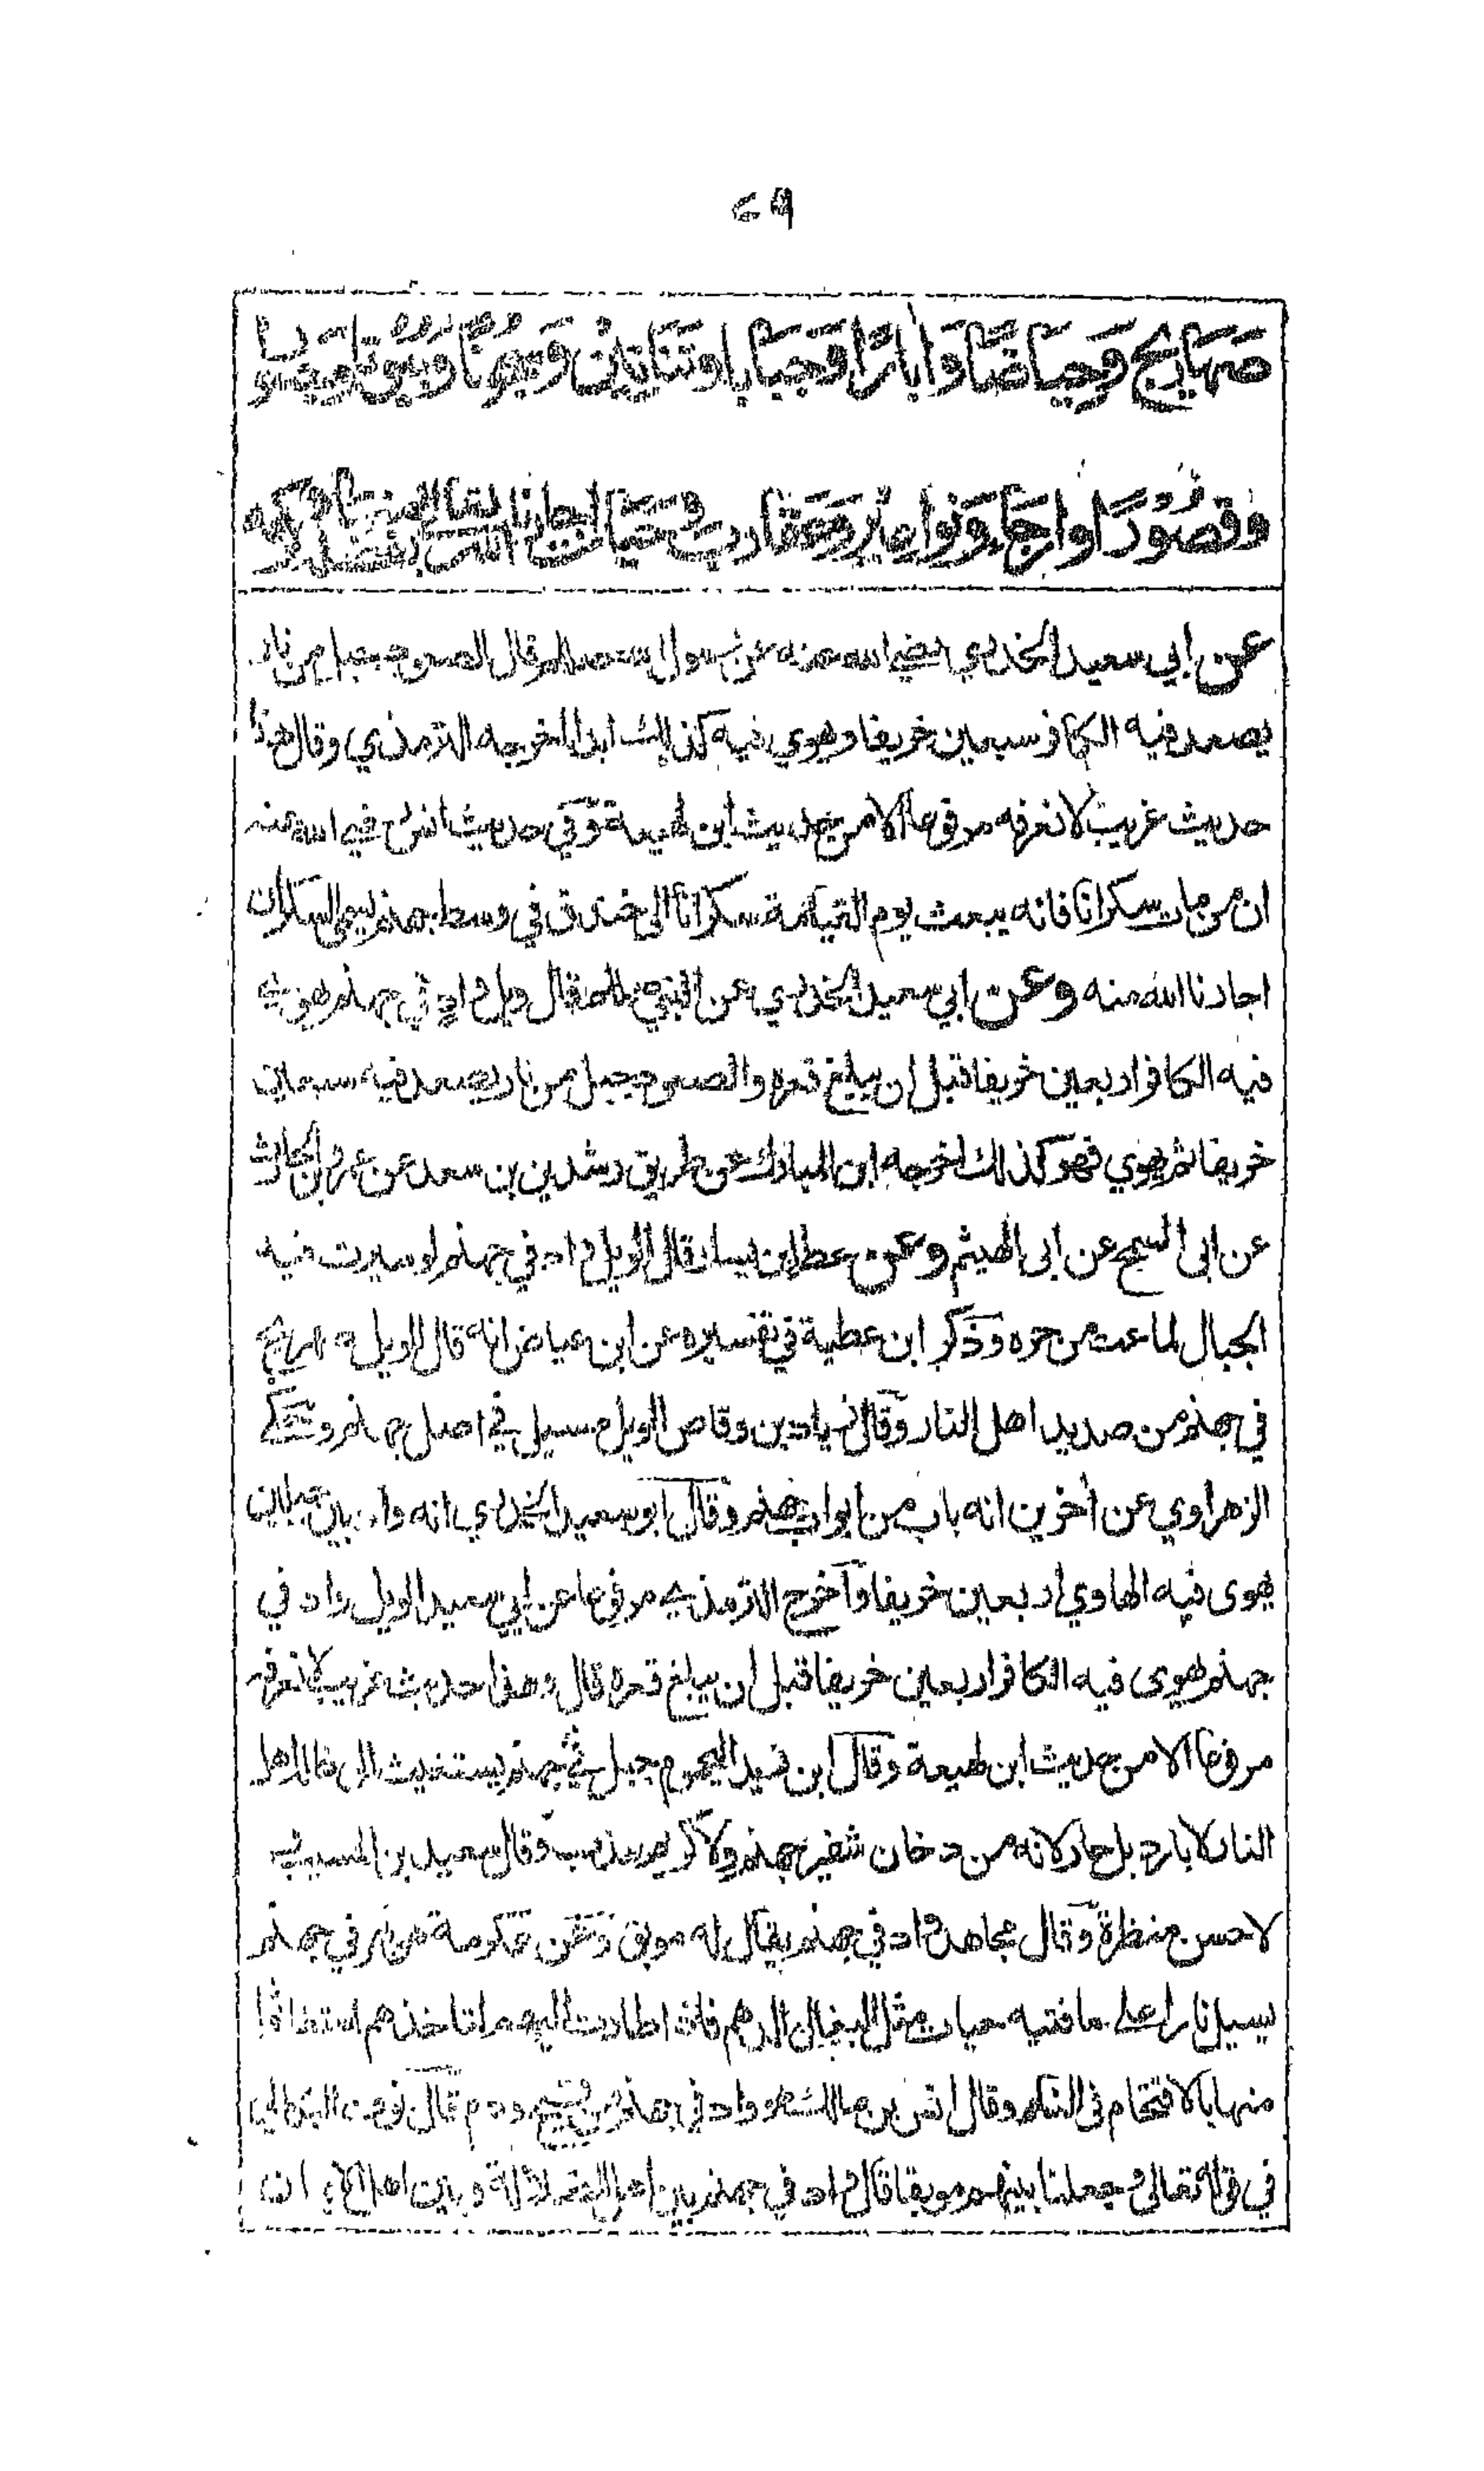 ٦٩
صهاريج وحياضا وآبارا وجبابا وتنانين وسجونا وبيوتا وجسورا
وقصورا وارجاء ونواعير وعقارب وحيات اجارنا الله تعالى منها بفضله وكرمه
عن ابي سعيد الخدري رضي الله عنه عن رسول الله صلعم قال الصعود جبل من نار
يصعد فيه الكافر سبعين خريفا ويهوي فيه كذلك ابدا اخرجه الترمذي وقال هذا
حديث غريب لا نعرفه مرفوعا الا من حديث ابن لهيعة وفي حديث انس رضي الله عنه
ان من مات سكرانا فانه يبعث يوم القيامة سكرانا الى خندق في وسط جهنم يسمى السكران
اجارنا الله منه وعن ابي سعيد الخدري عن النبي صلعم قال ويل واد في جهنم يهوي
فيه الكافر اربعين خريفا قبل ان يبلغ قعره والصعود جبل من نار يصعد فيه سبعين
خريفا ثم يهوي فهو كذلك اخرجه ابن المبارك عن طريق رشدين بن سعد عن عمرو بن الحارث
عن ابى السمح عن ابى الهيثم وعن عطاء بن يسار قال الويل واد في جهنم لو سيرت فيه
الجبال لماعت من حره وذكر ابن عطية في تفسيره عن ابن عياض انه قال الويل صهريج
في جهنم من صديد اهل النار وقال زياد بن وقاص الويل مسيل في اصل جهنم وحكى
الزهراوي عن اخرين انه باب من ابواب جهنم وقال ابو سعيد الخدري انه واد بين جبلين
يهوى فيه الهاوي اربعين خريفا وآخرج الترمذي مرفوعا عن ابي سعيد الويل واد في
جهنم يهوى فيه الكافر اربعين خريفا قبل ان يبلغ قعره قال وهذا حديث غريب لا نعرفه
مرفوعا الا من حديث ابن لهيعة وقال ابن زيد اليحموم جبل في جهنم يستغيث الى ظله اهل
النار لا بارد بل حار لانه من دخان شفير جهنم ولا كريم عذب وقال سعيد بن المسيب
لا حسن منظرة وقال مجاهد واد في جهنم يقال له موبق وعن عكرمة هو نهر في جهنم
يسيل نارا على حافتيه حيات مثل البغال الدهم فاذا طارت اليهم لتاخذهم استغاثوا
منها بالاقتحام في النار وقال انس بن مالك هو واد في جهنم من قيح ودم قال نوف البكالي
في قوله تعالى وجعلنا بينهم موبقا قال واد في جهنم بين اهل الضلالة وبين اهل الايمان